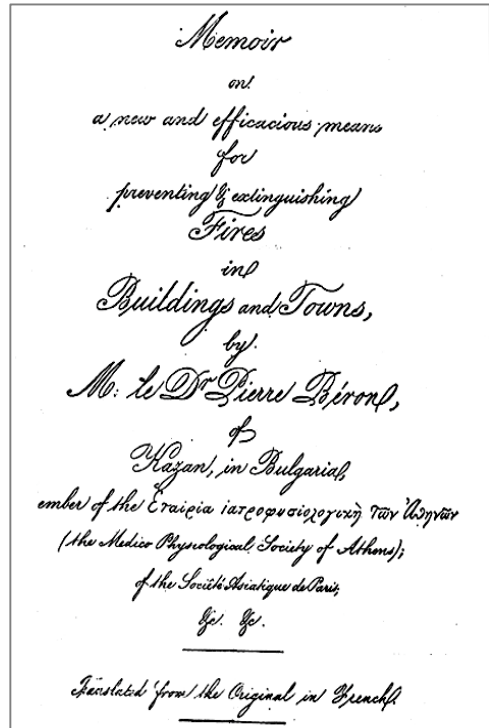 Memoir
on
a new and efficacious means
for
preventing & extinguishing
Fires
in
Buildings and Towns,
by
M. le Dr Pierre Béron,
of
Kazan, in Bulgaria,
ember of the Εταιρία ιατροφυσιολογικὴ τῶν Ἀθηνῶν
(the Medico Physiological Society of Athens);
of the Société Asiatique de Paris,
&c. &c.
Translated from the Original in French.